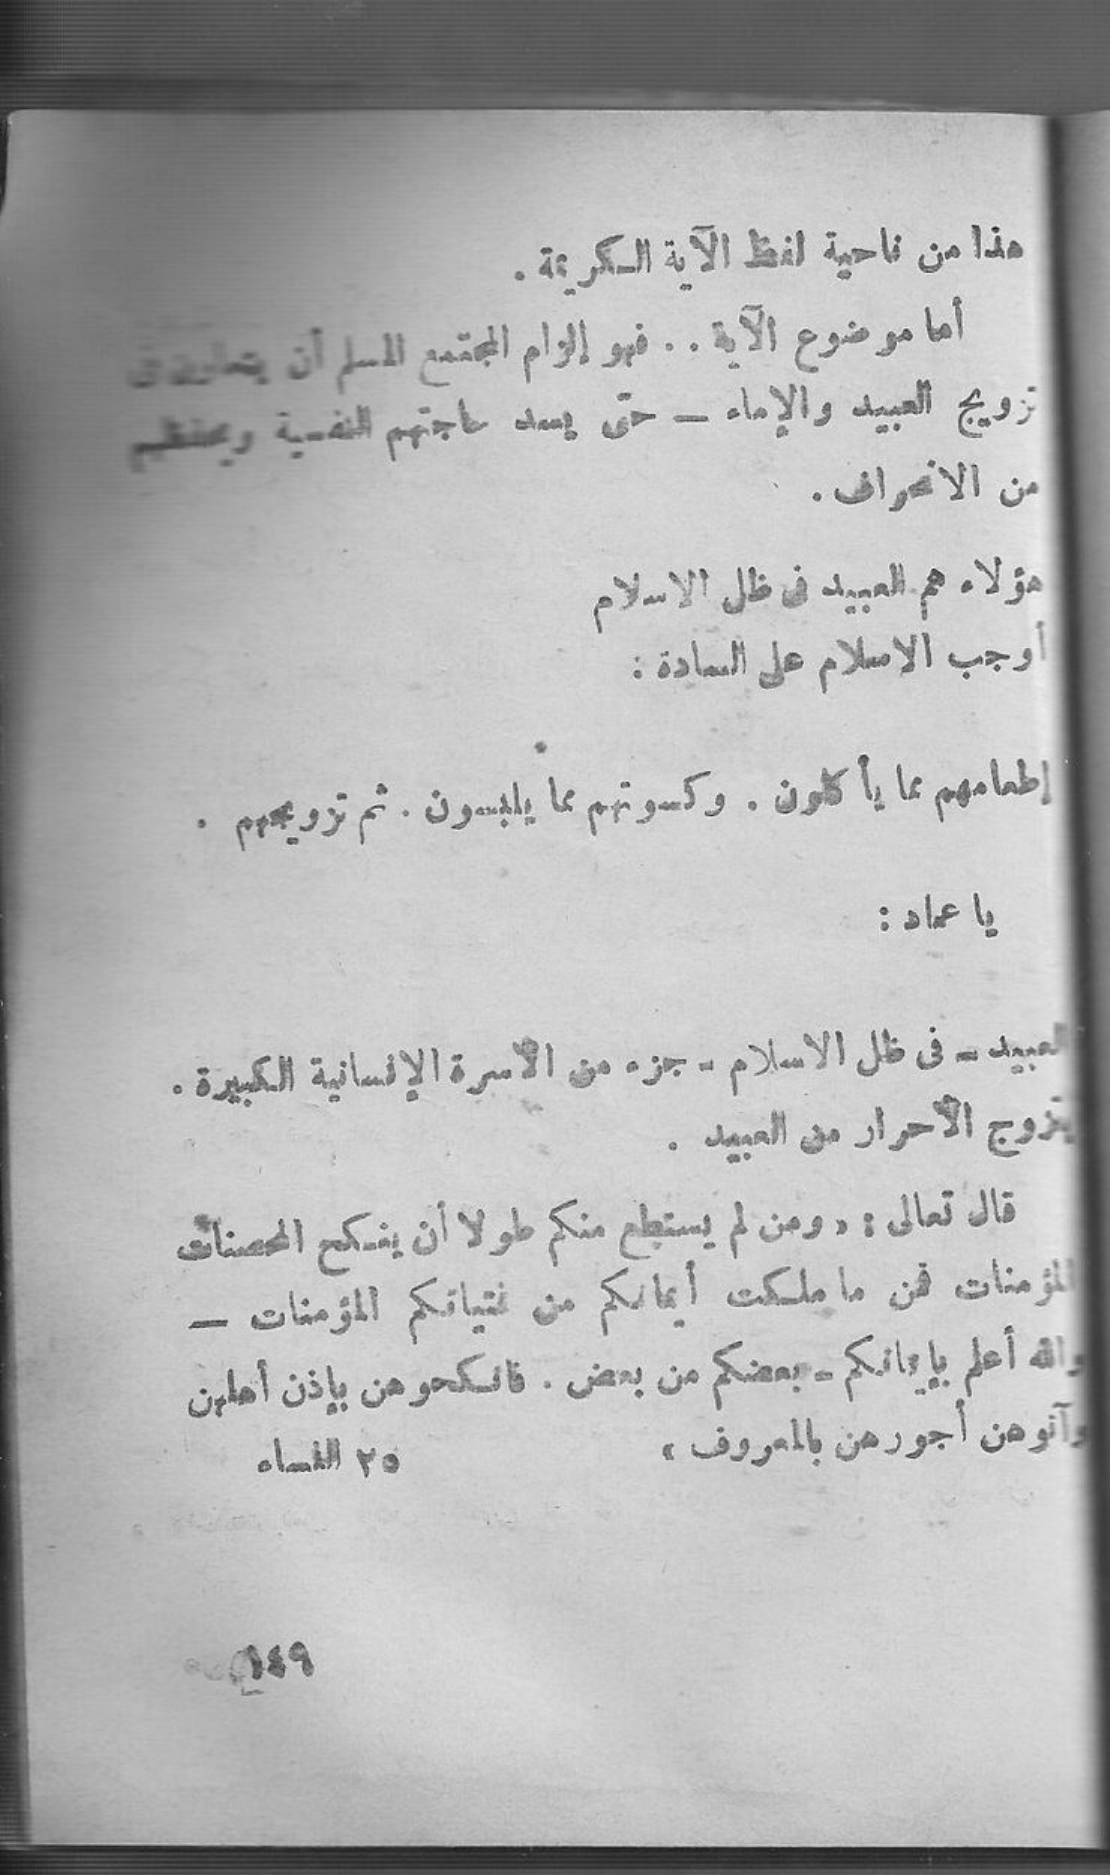 هذا من ناحية لفظ الآية الكريمة .
أما موضوع الآية . . فهو إلزام المجتمع المسلم أن يتعاون فى
تزويج العبيد والإماء – حتى يسد حاجتهم النفسية ويحفظهم
من الانحراف .
هؤلاء هم العبيد فى ظل الاسلام
أوجب الاسلام على السادة :
إطعامهم مما يأكلون . وكسوتهم مما يلبسون . ثم تزويجهم .
يا عماد :
العبيد – فى ظل الاسلام – جزء من الأسرة الإنسانية الكبيرة .
يتزوج الأحرار من العبيد .
قال تعالى : « ومن لم يستطع منكم طولا أن ينكح المحصنات
المؤمنات فمن ما ملكت أيمانكم من فتياتكم المؤمنات –
والله أعلم بإيمانكم – بعضكم من بعض . فانكحوهن بإذن أهلهن
وآتوهن أجورهن بالمعروف » ٢٥ النساء
١٤٩